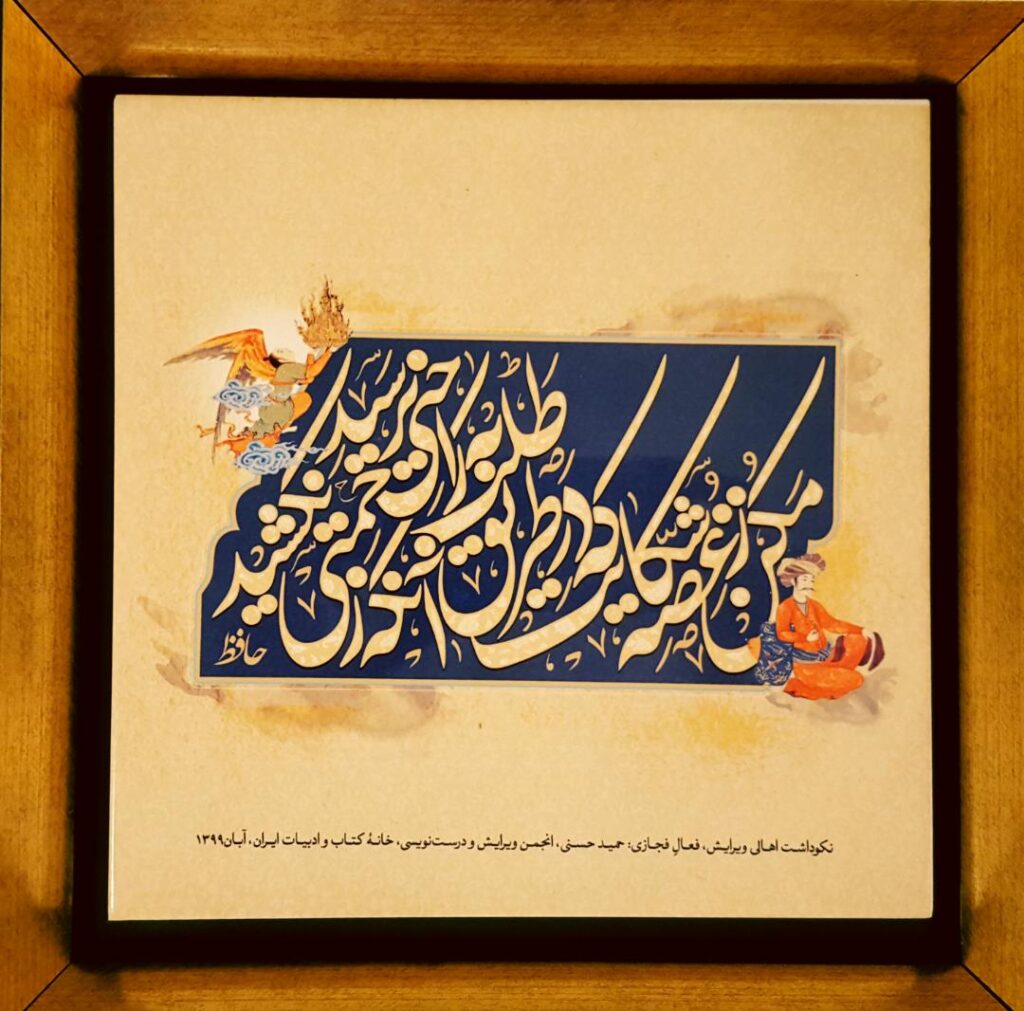 مکن ز غصه شکایت که در طریق طلب
به راحتی نرسید آنکه زحمتی نکشید
حافظ
نکوداشت اهالی ویرایش، فعالِ فجازی: حمید حسنی، انجمن ویرایش و درست‌نویسی، خانهٔ کتاب و ادبیات ایران، آبان۱۳۹۹